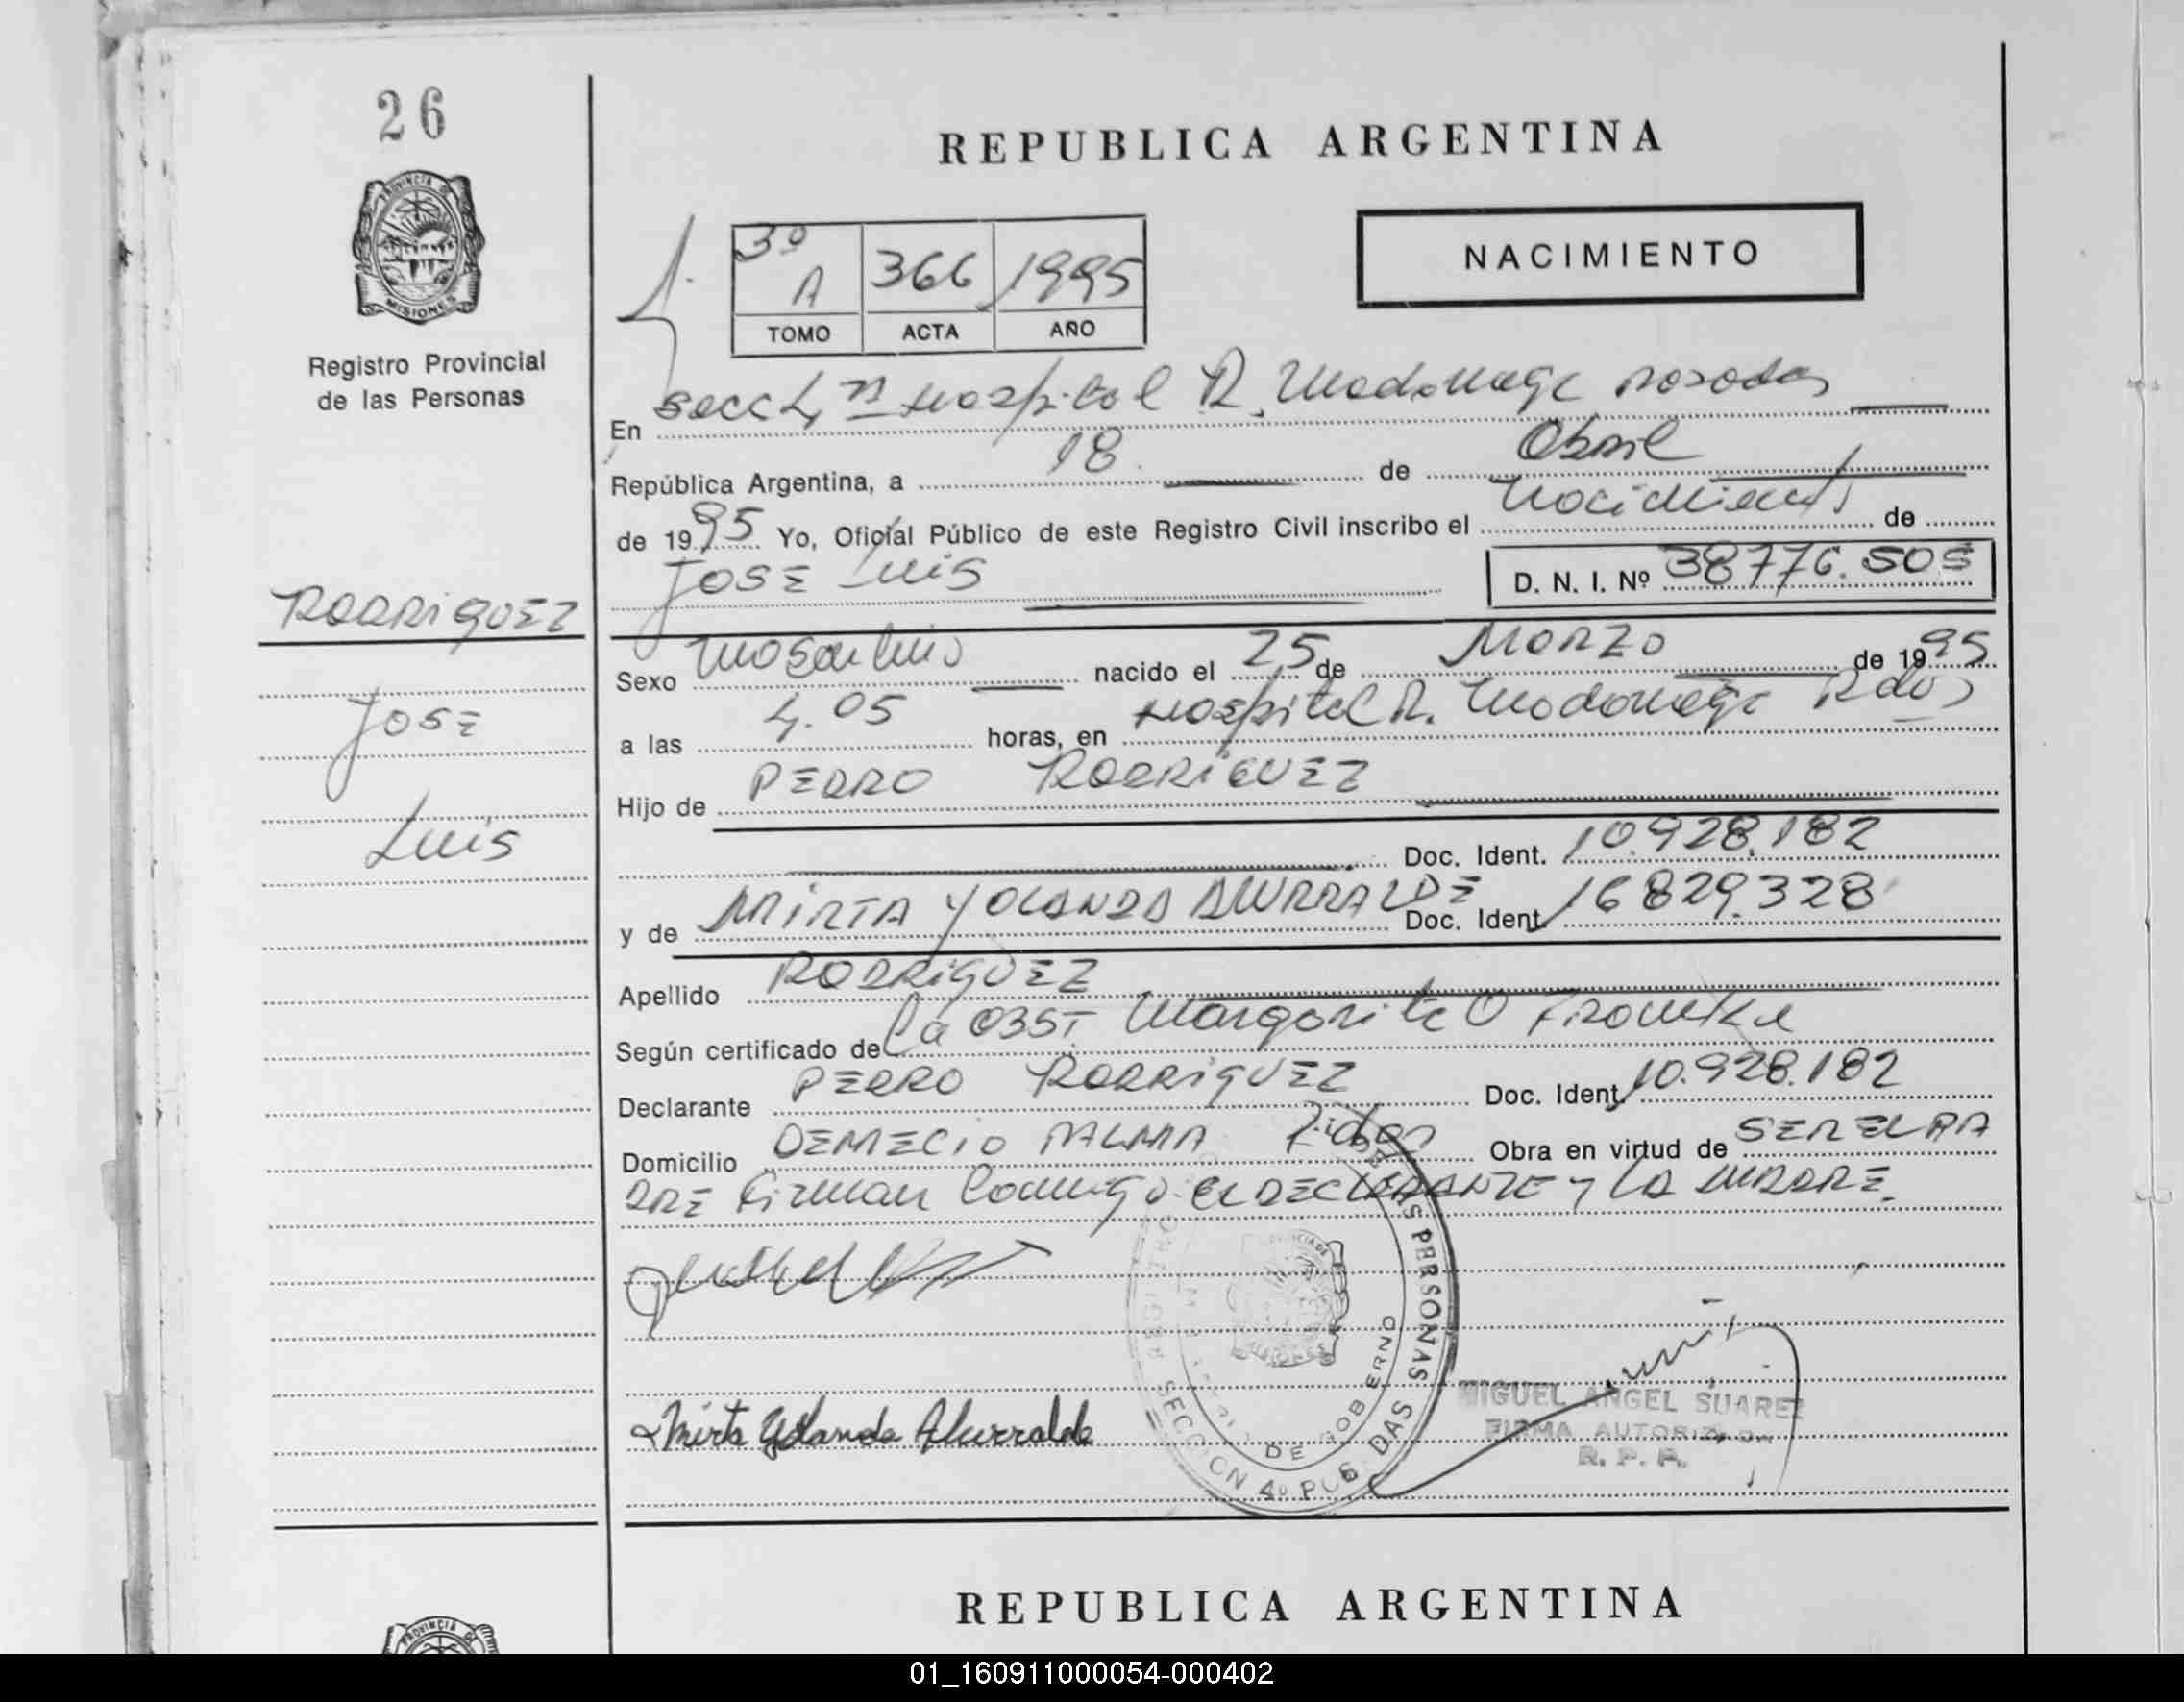 26
PROVINCIA DE
MISIONES
Registro Provincial
de las Personas
RODRIGUEZ
JOSE
Luis
REPUBLICA ARGENTINA
NACIMIENTO
3º A 366 1995
TOMO ACTA AÑO
En Secc 4ª Hospital R. Madariaga Posadas
República Argentina, a 18 de Abril
de 1995 Yo, Oficial Público de este Registro Civil inscribo el Nacimiento de
JOSE Luis D. N. I. Nº 38776.505
Sexo Masculino nacido el 25 de Marzo de 1995
a las 4.05 horas, en Hospital R. Madariaga Pdas
Hijo de PEDRO RODRIGUEZ
Doc. Ident. 10.928.182
y de MIRTA YOLANDA ALURRALDE Doc. Ident. 16829.328
Apellido RODRIGUEZ
Según certificado de La OBST. Margarita O
Declarante PEDRO RODRIGUEZ Doc. Ident. 10.928.182
Domicilio DEMECIO PALMA Pdas Obra en virtud de SER EL PA
DRE Firman Conmigo El DECLARANTE y LA MADRE.
Mirta Yolanda Alurralde
REGISTRO DE LAS PERSONAS
DE GOBIERNO
SECCION 4º POSADAS
MIGUEL ANGEL SUAREZ
FIRMA AUTORIZADA
R. P. P.
REPUBLICA ARGENTINA
PROVINCIA DE
01_160911000054-000402